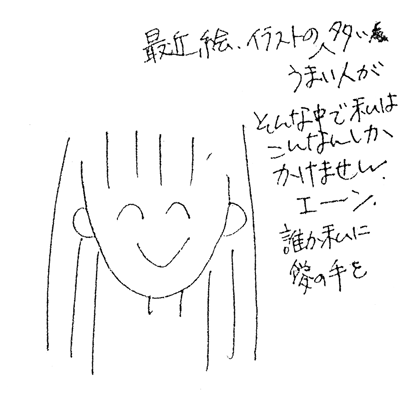 最近、絵、イラストの多い
うまい人が
そんな中で私は
こんなんしか
かけません.
エーン.
誰か私に
愛の手を